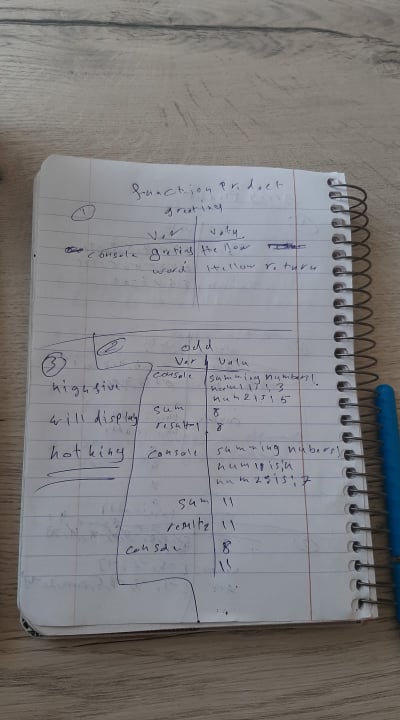 function Product
① greeting
Var Valu
console gretins Hellow
word Hellow return
② odd
Var Valu
console summing numbers!
num1 is; 3
num2 is; 5
sum 8
result1 8
console summing nubers!
num1 is; 4
num2 is; 7
sum 11
result2 11
console 8
11
③
highfive
will display
nothing